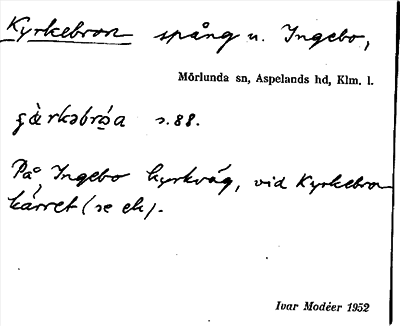 Kyrkebron spång u. Ingebo,
Mörlunda sn, Aspelands hd, Klm. l.
s. 88.
På Ingebo kyrkväg, vid Kyrkebro-
kärret (se ek).
Ivar Modéer 1952